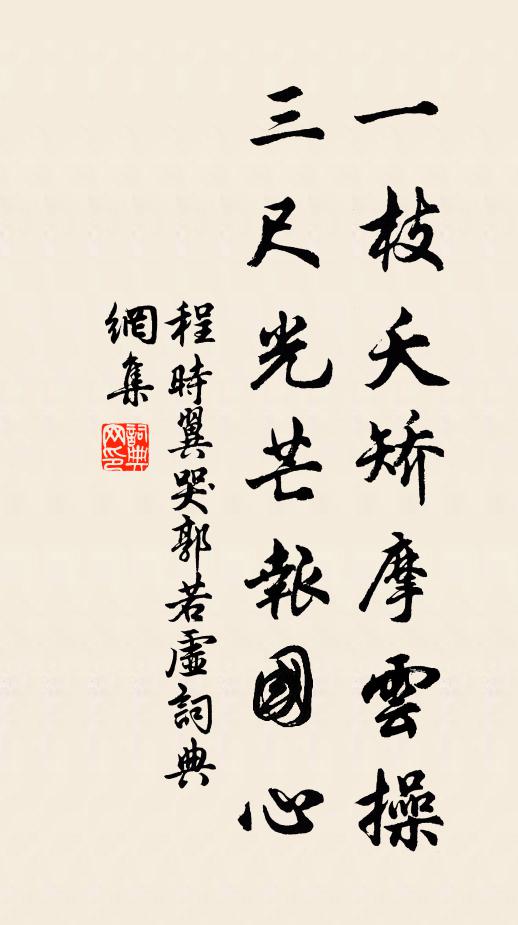 一枝夭矯摩雲操
三尺光芒報國心
程時翼哭郭若虛詞典
網集
詞典
网印